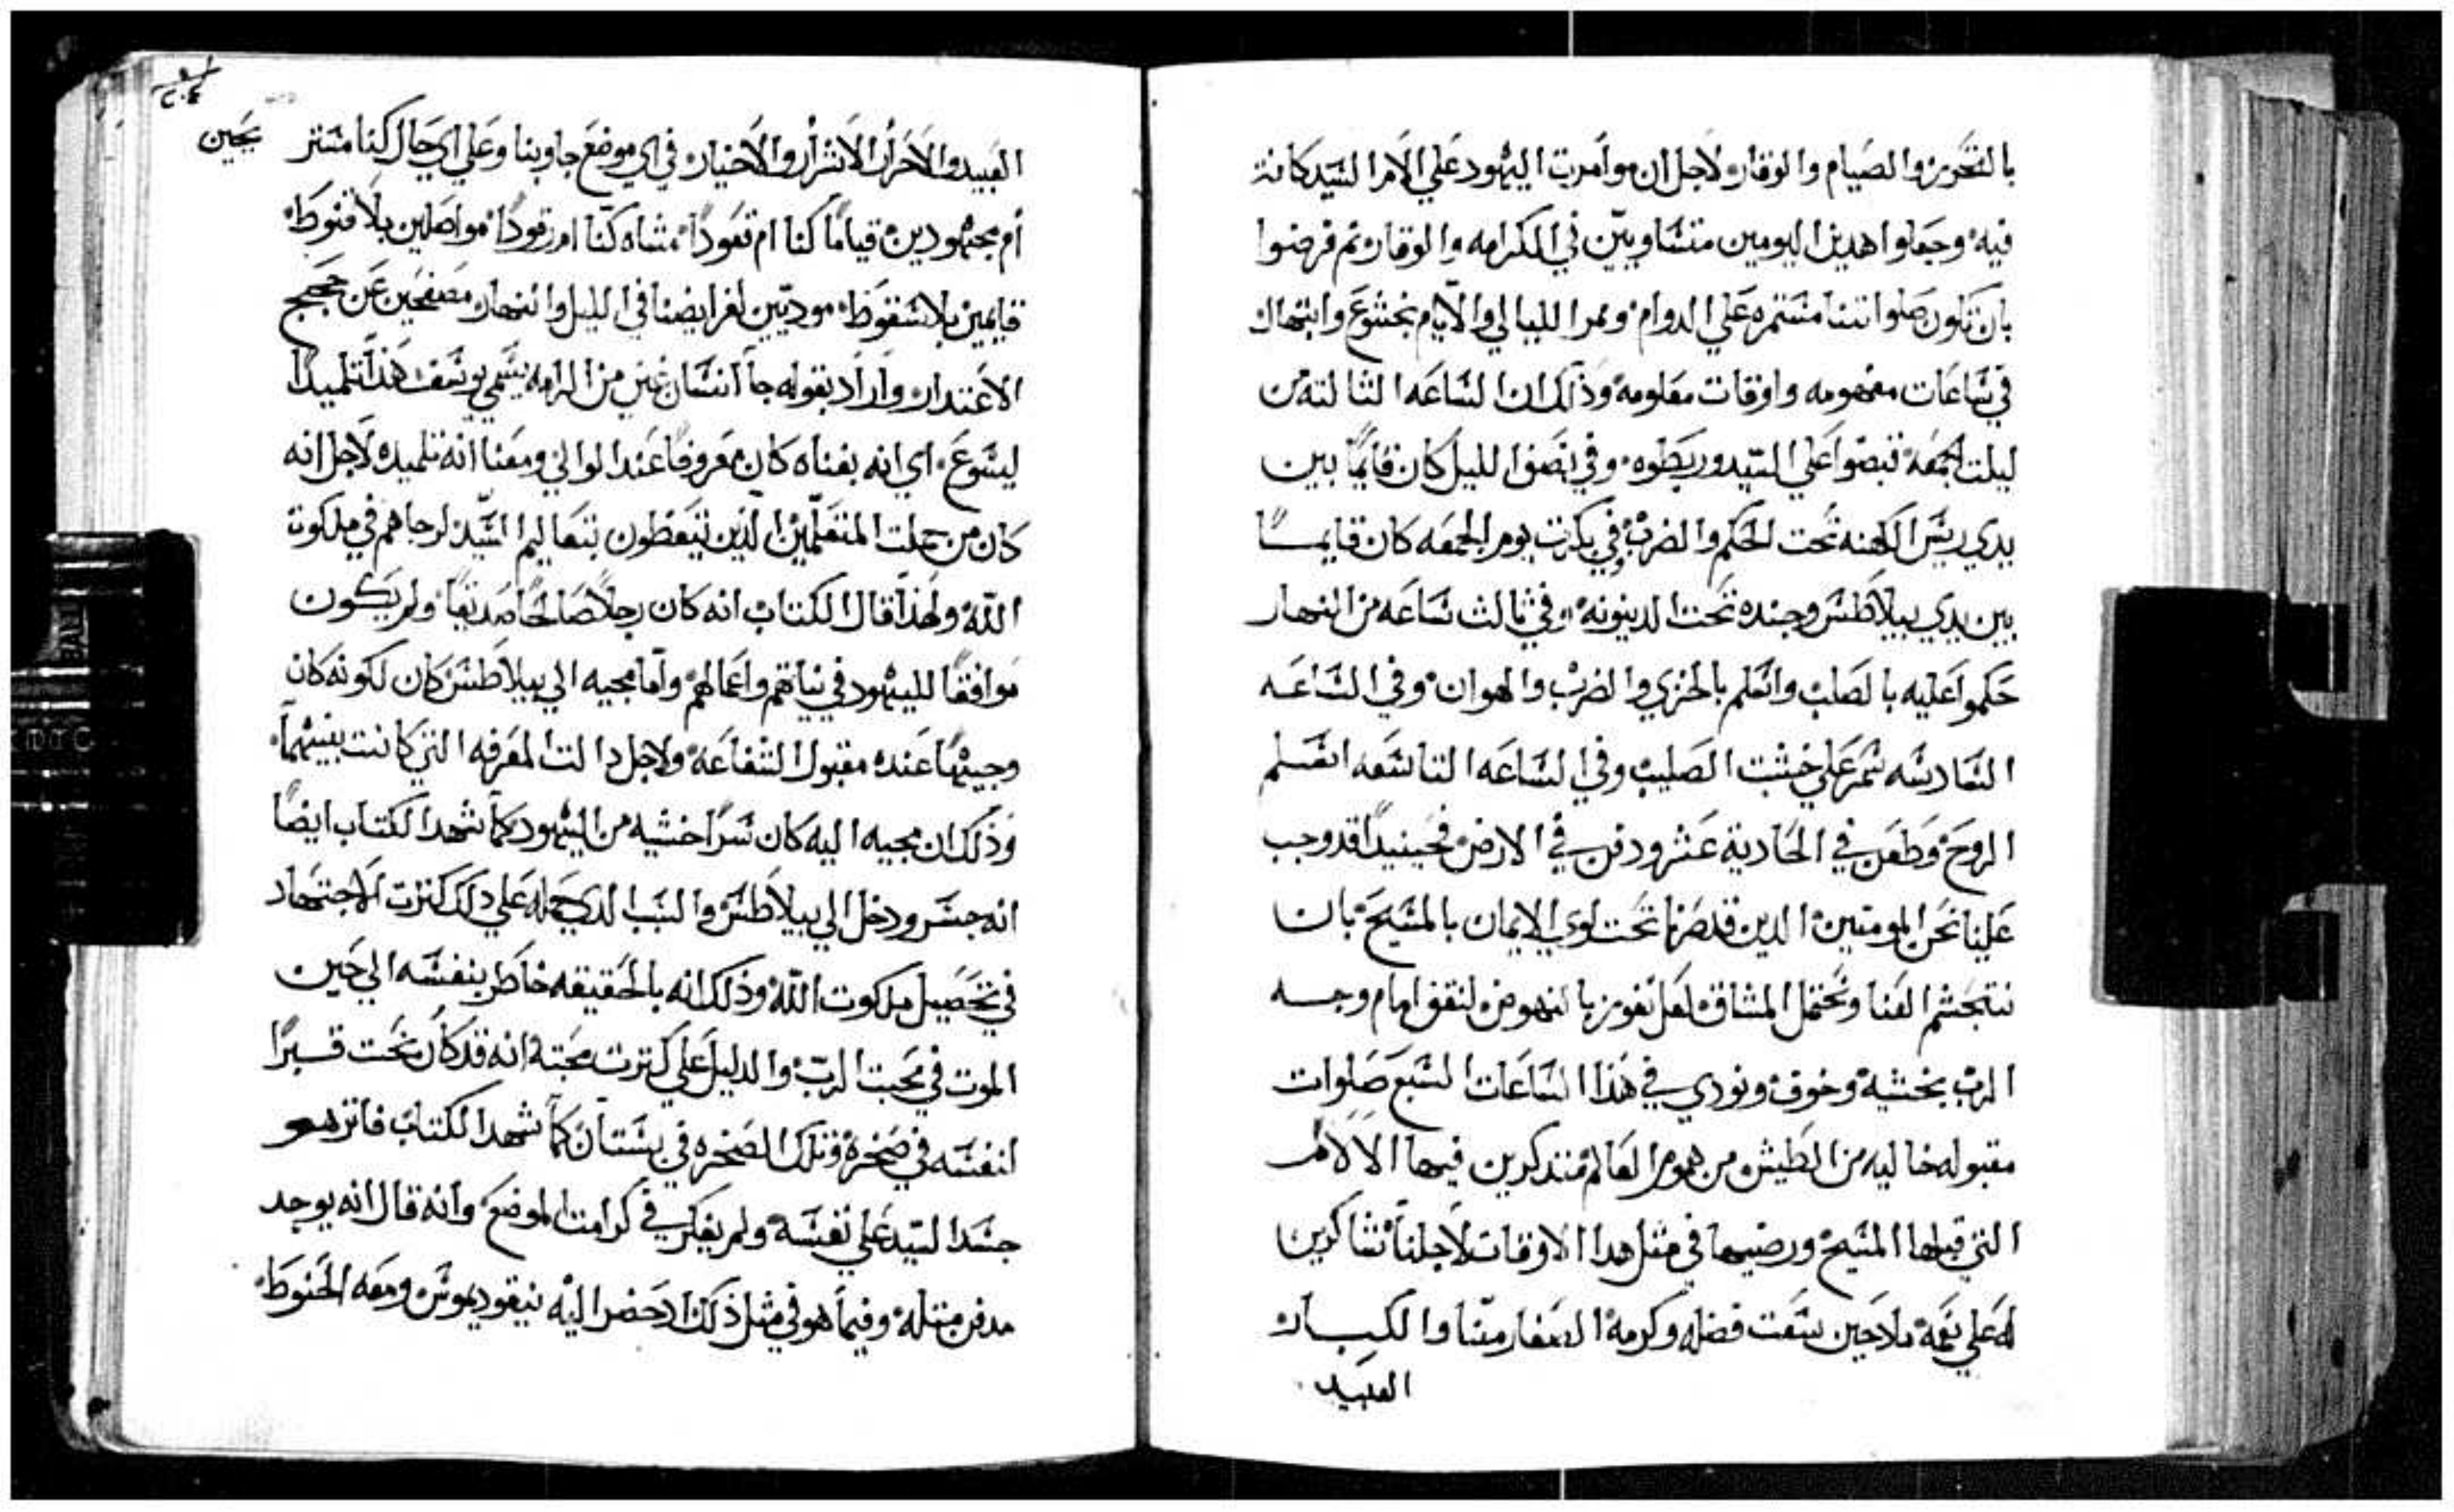 بالتحرير والصيام والوقار لاجل ان موامرت اليهود علي الامر السيد كانت
فيه وجعلوا هدين اليومين متساويين في الكرامه والوقار ثم فرضوا
بان تكون صلواتنا مستمره علي الدوام وممر الليالي والايام بخشوع وابتهال
في ساعات مفهومه واوقات معلومه وذلك ان الساعه الثالثه من
ليلت الجمعه قبضوا علي السيد وربطوه وفي نصف الليل كان قايمًا بين
يدي ريس الكهنه تحت الحكم والضرب وفي بكرت يوم الجمعه كان قايمسًا
بين يدي بيلاطس وجنده تحت الدينونه وفي ثالث ساعه من النهار
حكموا عليه بالصلب وانعلم بالخزي والضرب والهوان وفي الساعه
السادسه سمر علي خشبت الصليب وفي الساعه التاسعه اسلم
الروح وطعن في الحادية عشر ودفن في الارض فحينيدًا قد وجب
علينا نحن المومنين الدين قد صرنا تحت لوي الايمان بالمسيح بان
نتجشم العنا ونحتمل المشاق لعل نفوز بالنهوض لنقف امام وجه
الرب بخشية وخوف ونودي في هذا الساعات السبع صلوات
مقبوله خاليه من الطيش من هموم العالم متذكرين فيها الالام
التي قبلها المسيح ورضيها في مثل هدا الاوقات لاجلنا شاكرين
له علي نعمه مادحين سعت فضله وكرمه الصغار منا والكبار
العبيد
يحين
العبيد والاحرار الاشرار والاخيار في اي موضع جاوبنا وعلي اي حال كنا مستر
أم مجهودين قيامًا كنا ام قعودًا مشاه كنا ام رقودًا مواصلين بلا قنوط
قايمين بلا سقوط موديين لفرايضنا في الليل والنهار مصفحين عن حجج
الاعتدار واراد بقوله جا انسان غني من الرامه يسمي يوسف هذا تلميدًا
ليسوع اي انه بغناه كان معروفًا عند الوالي ومعنا انه تلميده لاجل انه
كان من جملت المتعلمين الذين يتعظون بتعاليم السيد لرجاهم في ملكوت
الله ولهذا قال الكتاب انه كان رجلاً صالحًا صديقًا ولم يكون
موافقًا لليهود في نياتهم واعمالهم واما مجيه الي بيلاطس كان لكونه كان
وجيهًا عنده مقبول الشفاعه ولاجل دالت المعرفه التي كانت بينهما
وذلك ان مجيه اليه كان سرًا خشيه من اليهود كما شهد الكتاب ايضًا
انه جسر ودخل الي بيلاطس والسبب الدي حمله علي دلك كترت الاجتهاد
في تحصيل ملكوت الله وذلك انه بالحقيقه خاطر بنفسه الي حين
الموت في محبت الرب والدليل علي كترت محبته انه قد كان نحت قبرًا
لنفسه في صخرة وتلك الصخره في بستان كما شهد الكتاب فاتر هو
جسد السيد علي نفسه ولم يفكر في كرامت الموضع وانه قال انه يوجد
مدفن متله وفيما هو في مثل ذلك اد حضر اليه نيقوديموس ومعه الحنوط